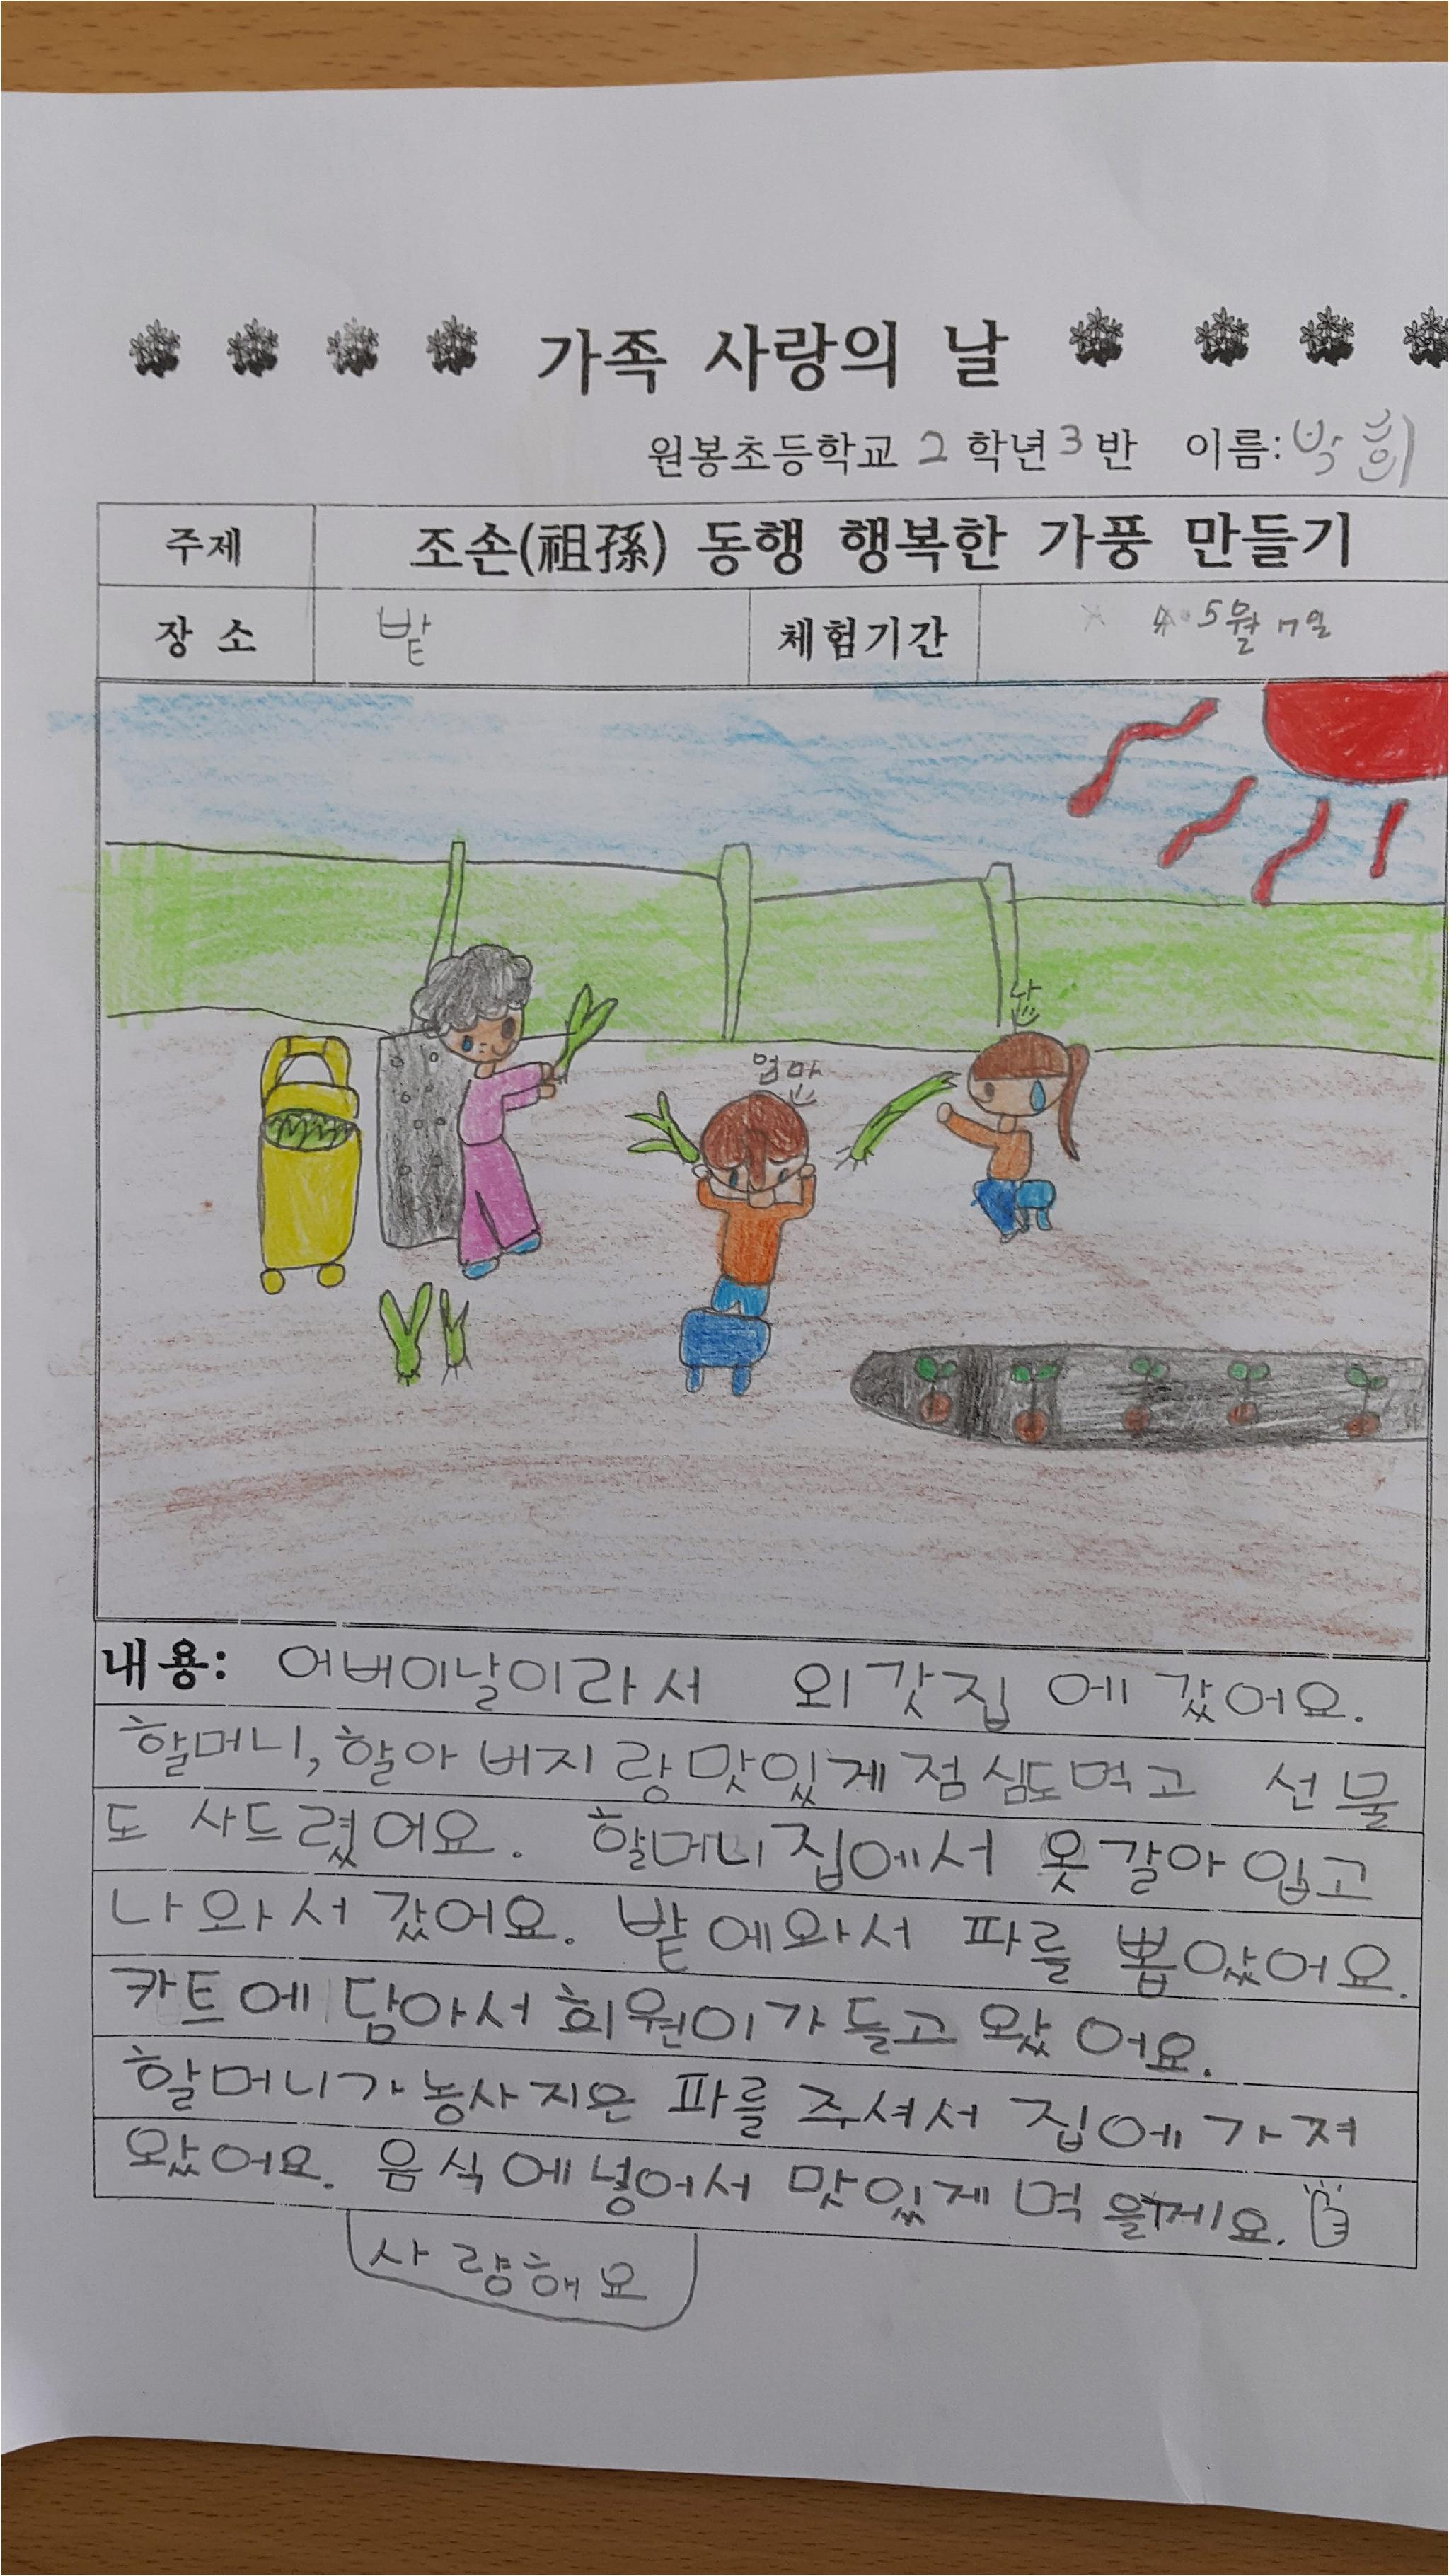 가족 사랑의 날
원봉초등학교 2 학년 3 반 이름: 박희
주제 조손(祖孫) 동행 행복한 가풍 만들기
장 소 밭 체험기간 5월 7일
나
엄마
내용: 어버이날이라서 외갓집에 갔어요.
할머니, 할아버지랑 맛있게 점심도 먹고 선물
도 사드렸어요. 할머니 집에서 옷 갈아 입고
나와서 갔어요. 밭에 와서 파를 뽑았어요.
카트에 담아서 희원이가 들고 왔어요.
할머니가 농사 지은 파를 주셔서 집에 가져
왔어요. 음식에 넣어서 맛있게 먹을게요.
사랑해요